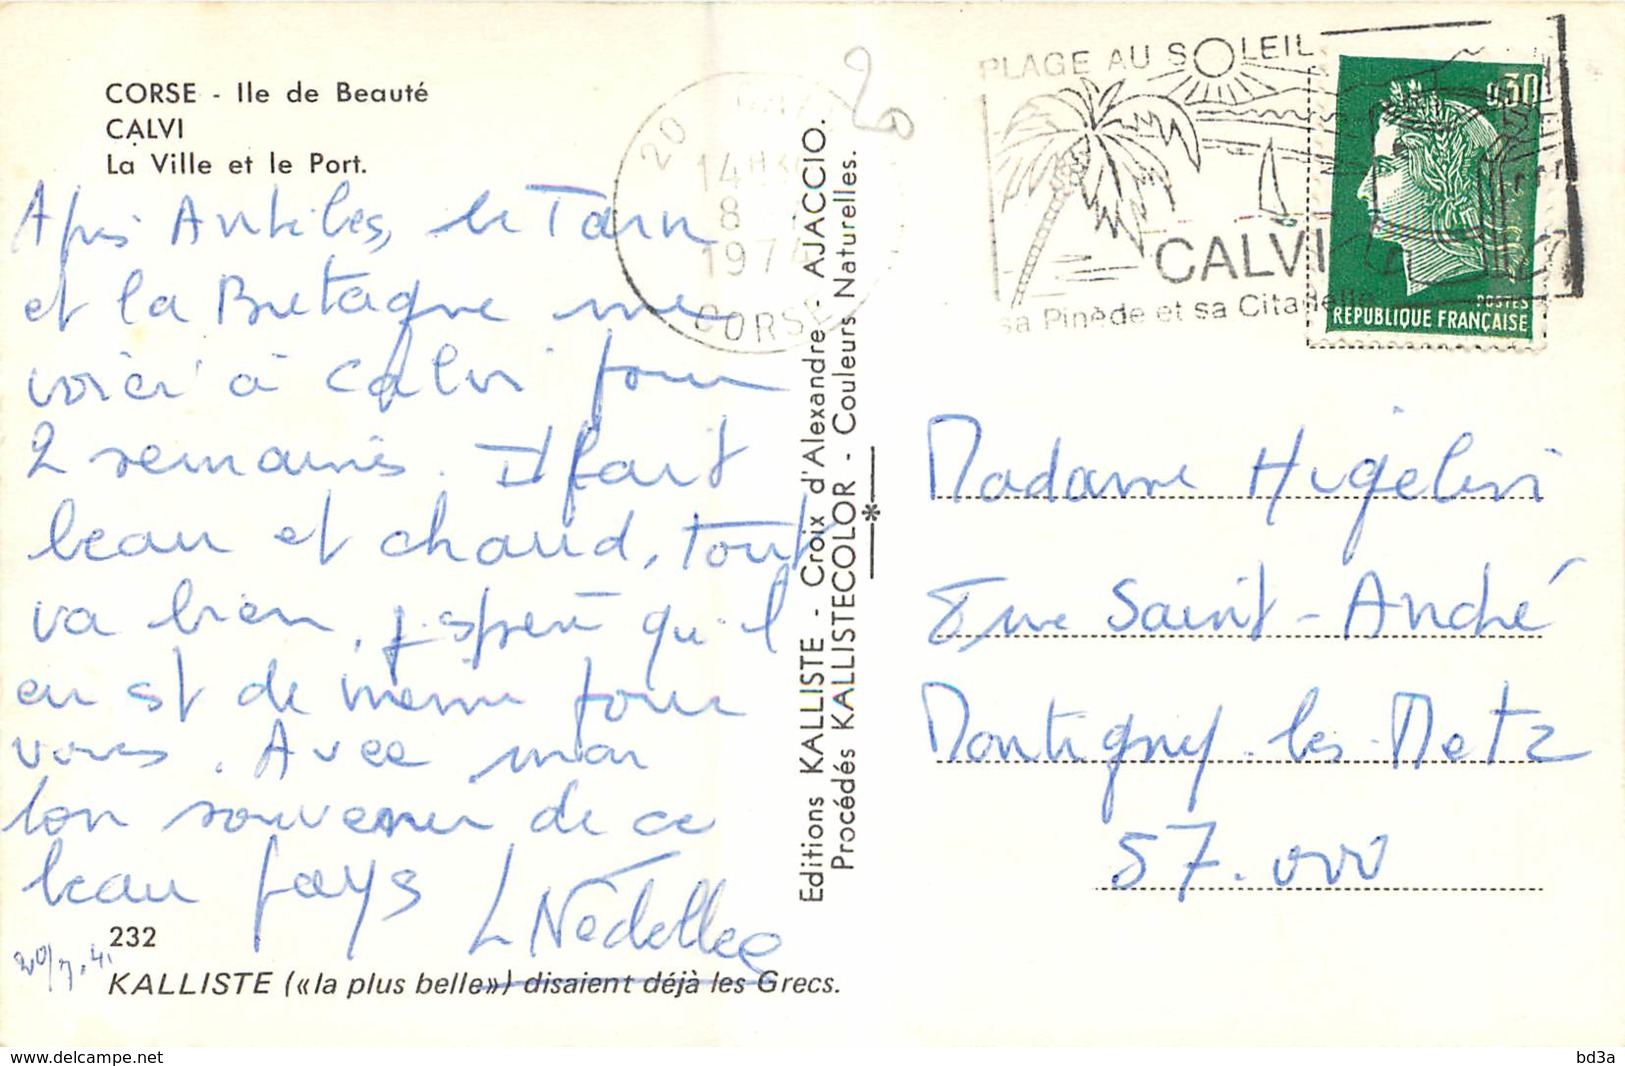 CORSE - Ile de Beauté
CALVI
La Ville et le Port.
Après Antilles, le Tarn
et la Bretagne me
voici à Calvi pour
2 semaines. Il fait
beau et chaud, tout
va bien, j'espère qu'il
en est de même pour
vous. Avec mon
bon souvenir de ce
beau pays
L Nédellec
232
KALLISTE («la plus belle») disaient déjà les Grecs.
Editions KALLISTE - Croix d'Alexandre - AJACCIO.
Procédés KALLISTECOLOR - Couleurs Naturelles.
20
14 H
8
197
CORSE
20
PLAGE AU SOLEIL
CALVI
sa Pinède et sa Citadelle
0,30
POSTES
REPUBLIQUE FRANÇAISE
Madame Hugelin
rue Saint-André
Montigny-les-Metz
57.000
delcampe.net
bd3a